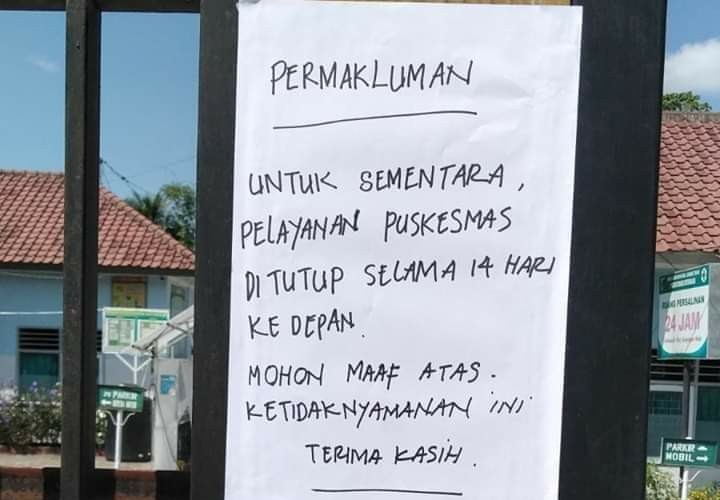 PERMAKLUMAN
UNTUK SEMENTARA,
PELAYANAN PUSKESMAS
DI TUTUP SELAMA 14 HARI
KE DEPAN.
MOHON MAAF ATAS.
KETIDAKNYAMANAN INI
TERIMA KASIH.
RUANG PERSALINAN
24 JAM
PARKIR
PARKIR
MOBIL